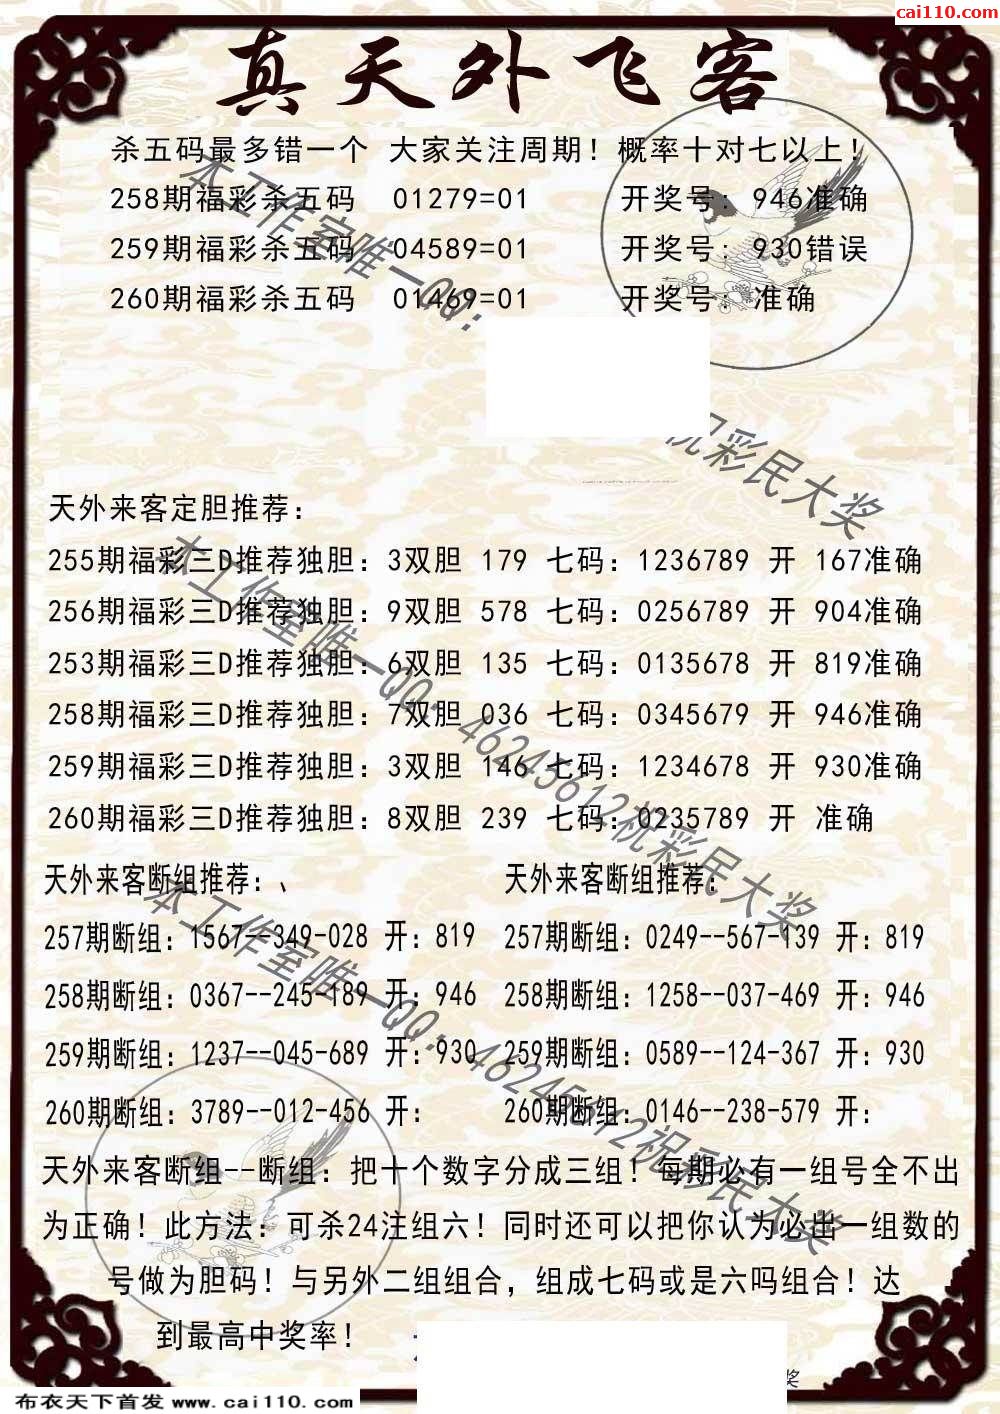 cai110.com
真天外飞客
杀五码最多错一个 大家关注周期！概率十对七以上！
258期福彩杀五码 01279=01 开奖号：946准确
259期福彩杀五码 04589=01 开奖号：930错误
260期福彩杀五码 01469=01 开奖号：准确
本工作室唯一QQ：
祝彩民大奖
天外来客定胆推荐：
255期福彩三D推荐独胆：3双胆 179 七码：1236789 开 167准确
256期福彩三D推荐独胆：9双胆 578 七码：0256789 开 904准确
253期福彩三D推荐独胆：6双胆 135 七码：0135678 开 819准确
258期福彩三D推荐独胆：7双胆 036 七码：0345679 开 946准确
259期福彩三D推荐独胆：3双胆 146 七码：1234678 开 930准确
260期福彩三D推荐独胆：8双胆 239 七码：0235789 开 准确
本工作室唯一QQ：46245612祝彩民大奖
天外来客断组推荐：、 天外来客断组推荐：
257期断组：1567--349-028 开：819 257期断组：0249--567-139 开：819
258期断组：0367--245-189 开：946 258期断组：1258--037-469 开：946
259期断组：1237--045-689 开：930 259期断组：0589--124-367 开：930
260期断组：3789--012-456 开： 260期断组：0146--238-579 开：
本工作室唯一QQ：46245612祝彩民大奖
天外来客断组--断组：把十个数字分成三组！每期必有一组号全不出
为正确！此方法：可杀24注组六！同时还可以把你认为必出一组数的
号做为胆码！与另外二组组合，组成七码或是六吗组合！达
到最高中奖率！
奖
布衣天下首发 www.cai110.com